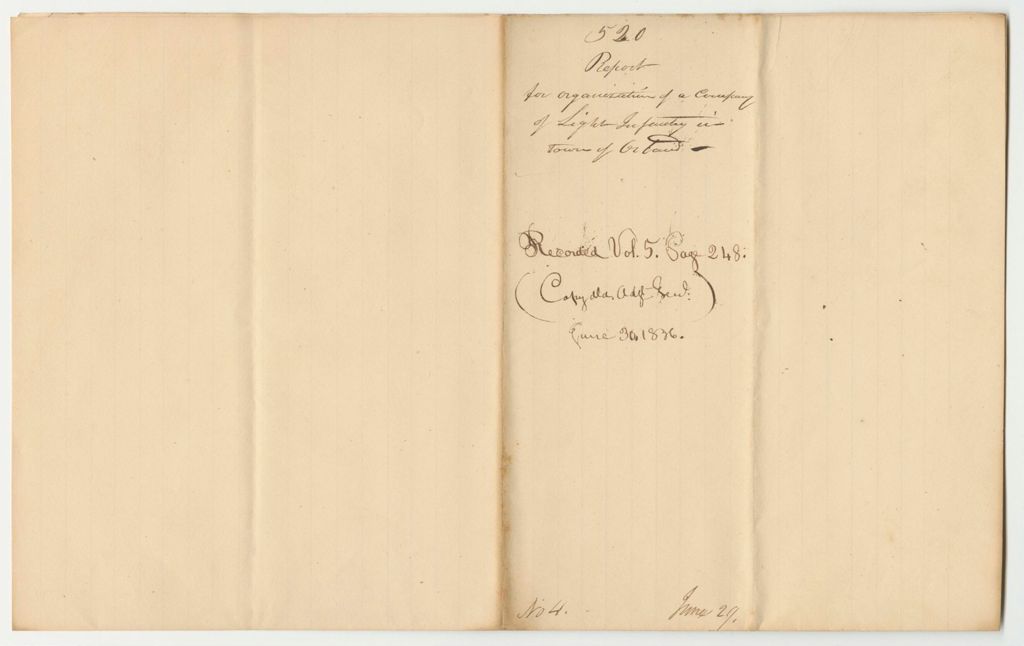 520
Report
for organization of a Company
of Light Infantry in
town of Orland
Recorded Vol. 5. Page 248.
(Copy to Adjt Genl.)
June 30, 1836.
No 4. June 29.